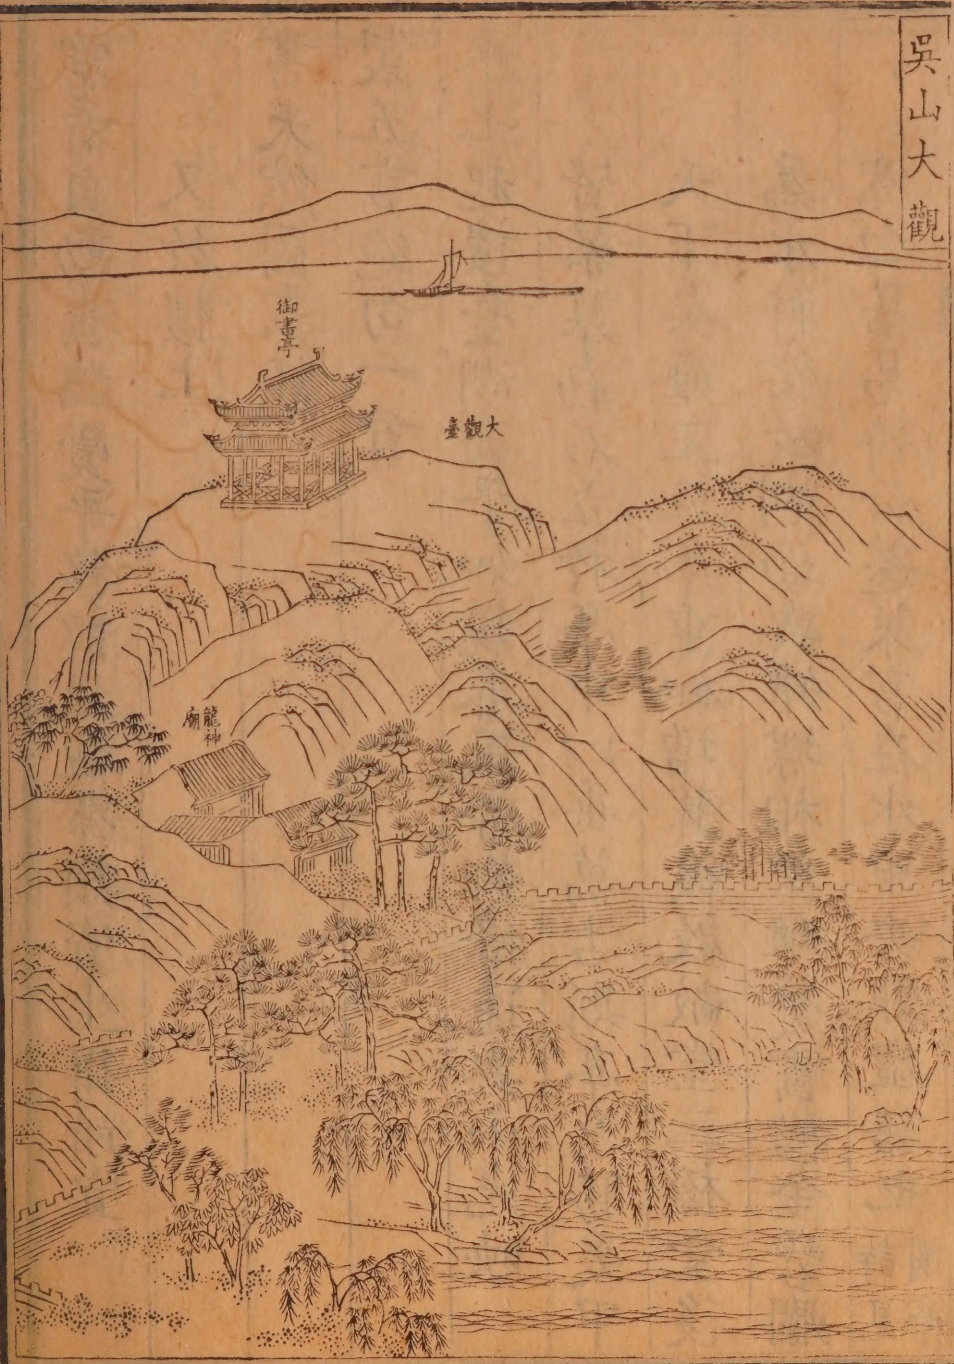 吳山大觀
御書亭
大觀臺
龍神廟